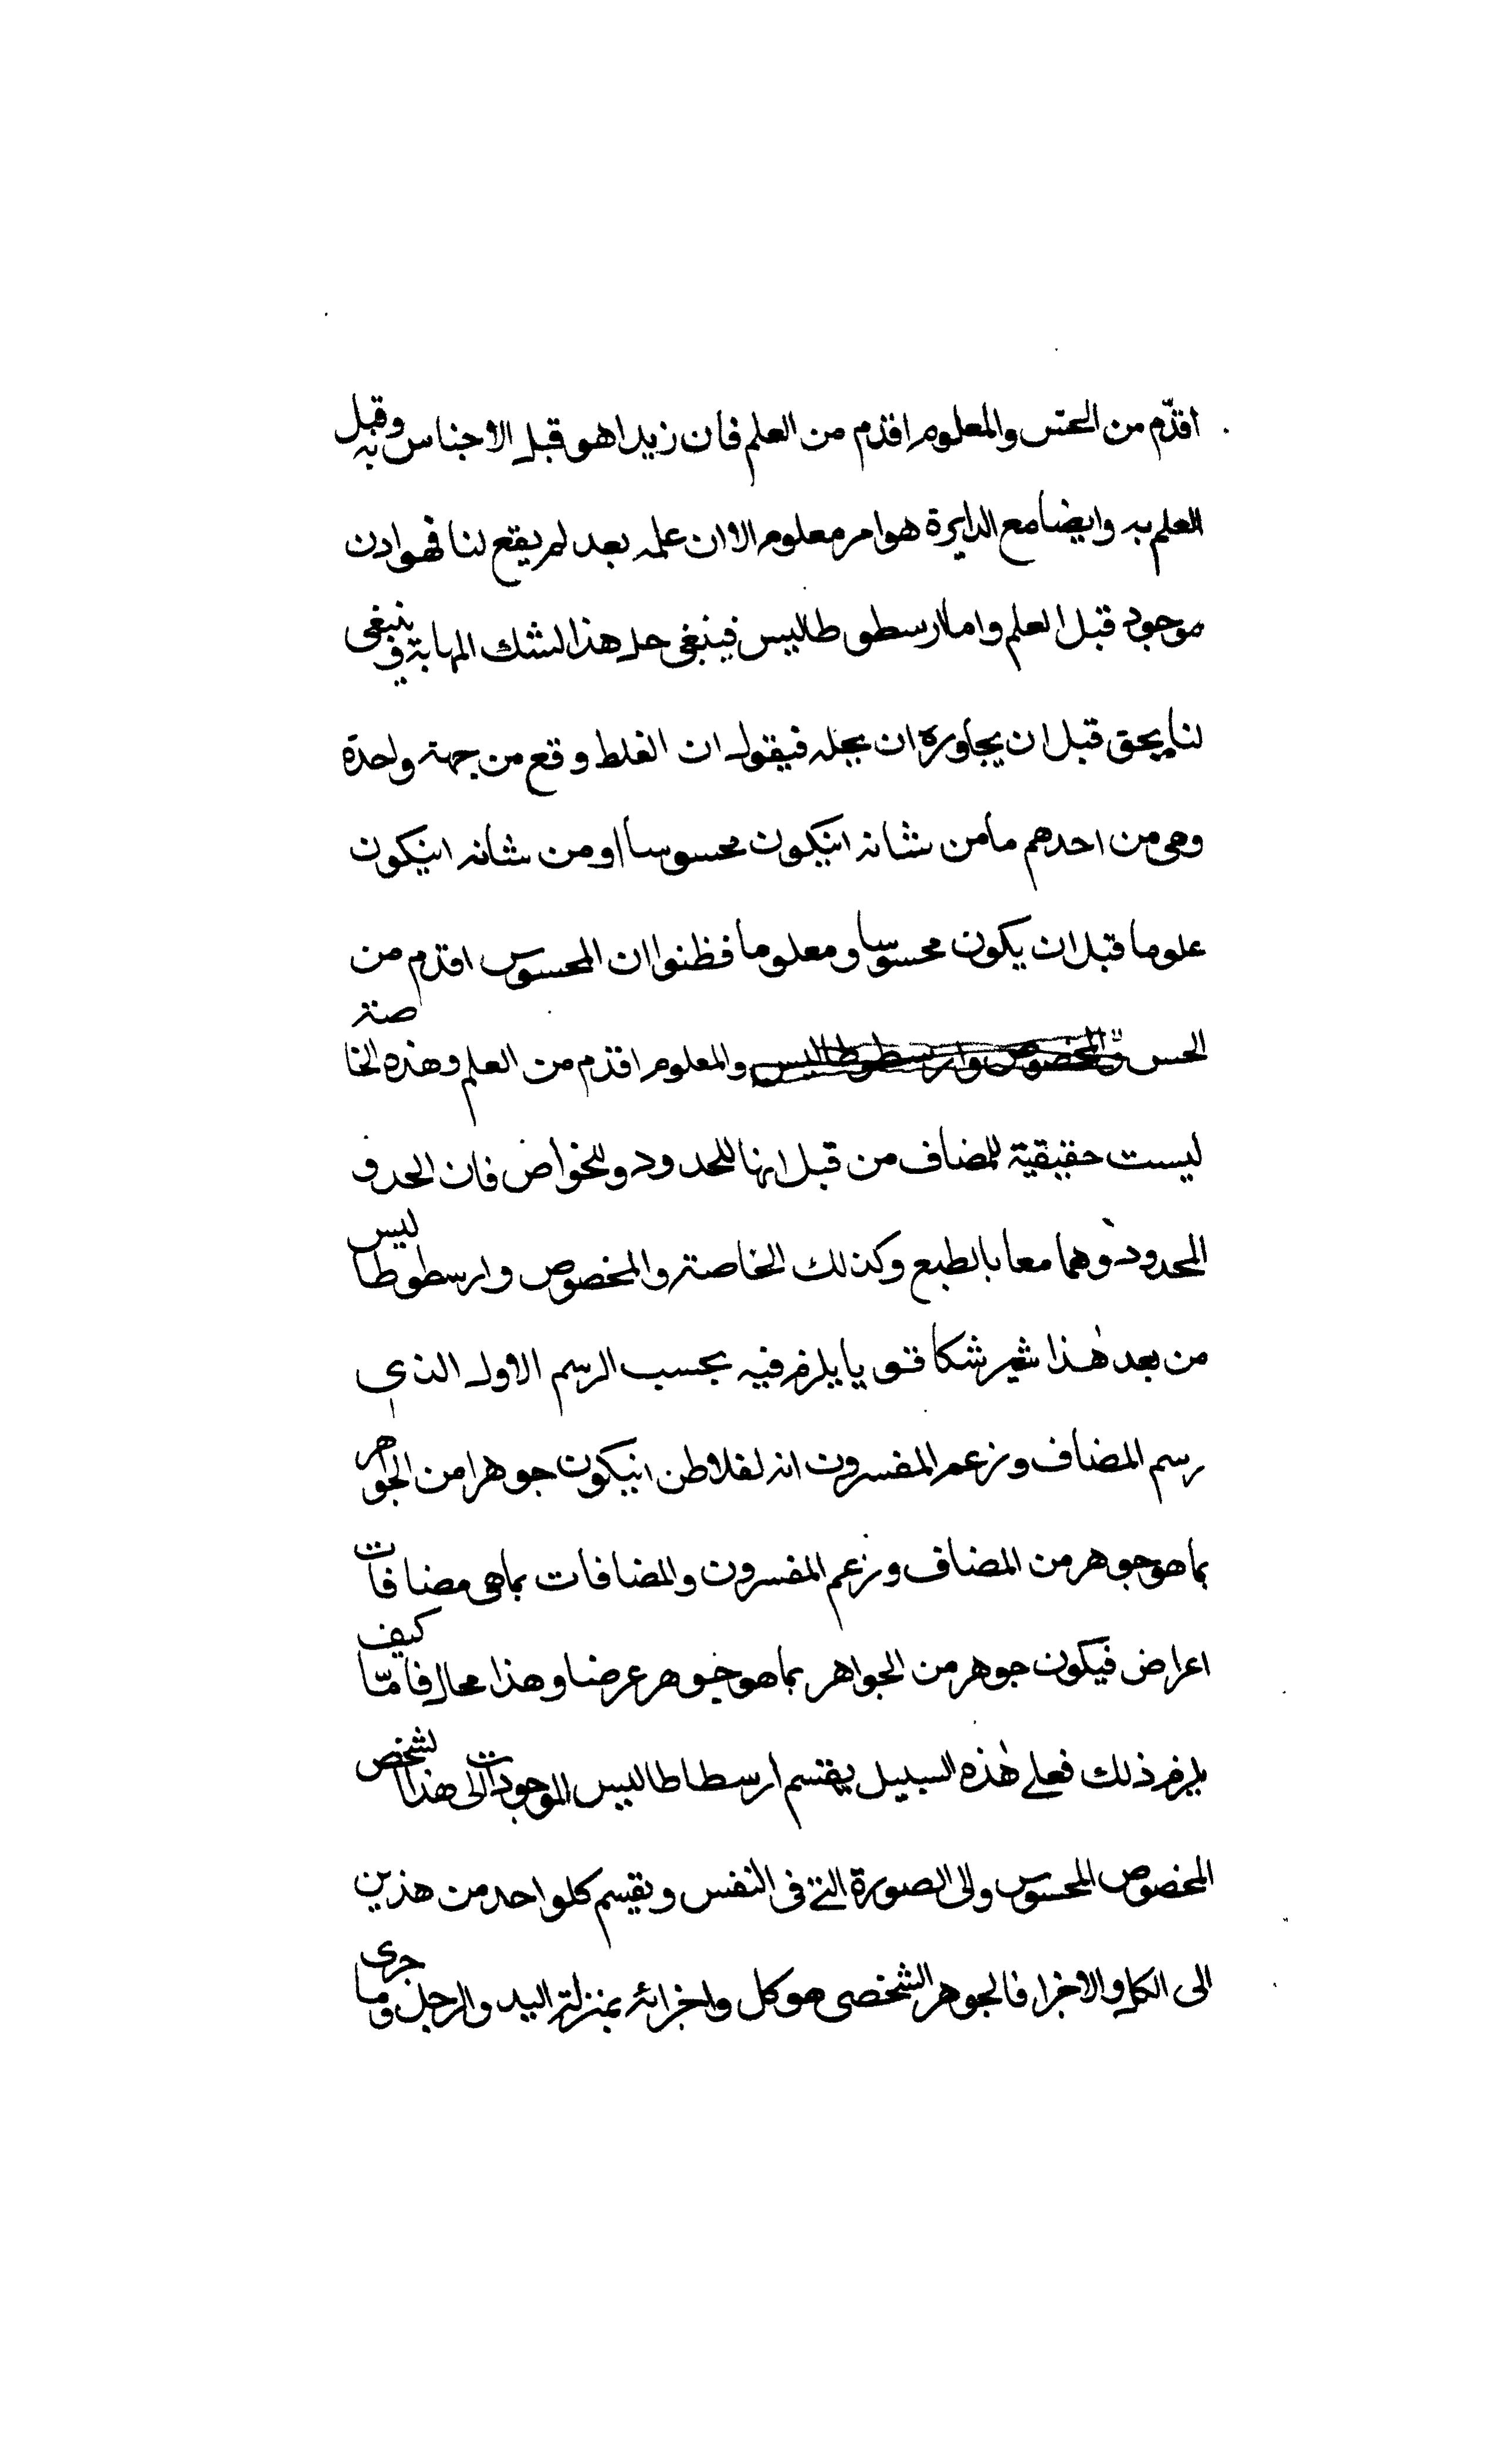 اقدّم من الحسّ والمعلوم اقدم من العلم فان زيدا هو قبل الاحناس به وقبل
العلم به وايضا مع الدايرة هو امر معلوم الا ان علمه بعد لم يقع لنا فهو ادن
موجود قبل العلم واما ارسطوطاليس فينبغى حل هذا الشك ينبغى
لنا بحق قبل ان يجاوره ان يحله فيقول ان الغلط وقع من جهة واحدة
وهى من احدهم ما من شانه انيكون محسوسا او من شانه انيكون
علوما قبل ان يكون محسوسا ومعلوما فظنوا ان المحسوس اقدم من
الحس والمعلوم اقدم من العلم وهذه الخاصة
ليست حقيقية للمضاف من قبل انها للحدود وللخواص فان الحد و
المحدود وهما معا بالطبع وكذلك الخاصة والمخصوص وارسطوطاليس
من بعد هذا شكا قويا يلزم فيه بحسب الرسم الاول الذى
رسم المضاف وزعم المفسرون انه لفلاطن انيكون جوهرا من الجواهر
بما هو جوهر من المضاف وزعم المفسرون والمضافات بما هى مضافات
اعراض فيكون جوهر من الجواهر بما هو جوهر عرضا وهذا محال فامّا كيف
يلزم ذلك فعلى هذه السبيل يقتسم ارسطاطاليس الموجودات الى هذا الشخص
المخصوص المحسوس والى الصورة التى فى النفس ويقيسم كلواحد من هذين
الى الكل والاخرا فالجوهر الشخصى هو كل واخرائه بمنزلة اليد والرجل وما جرى